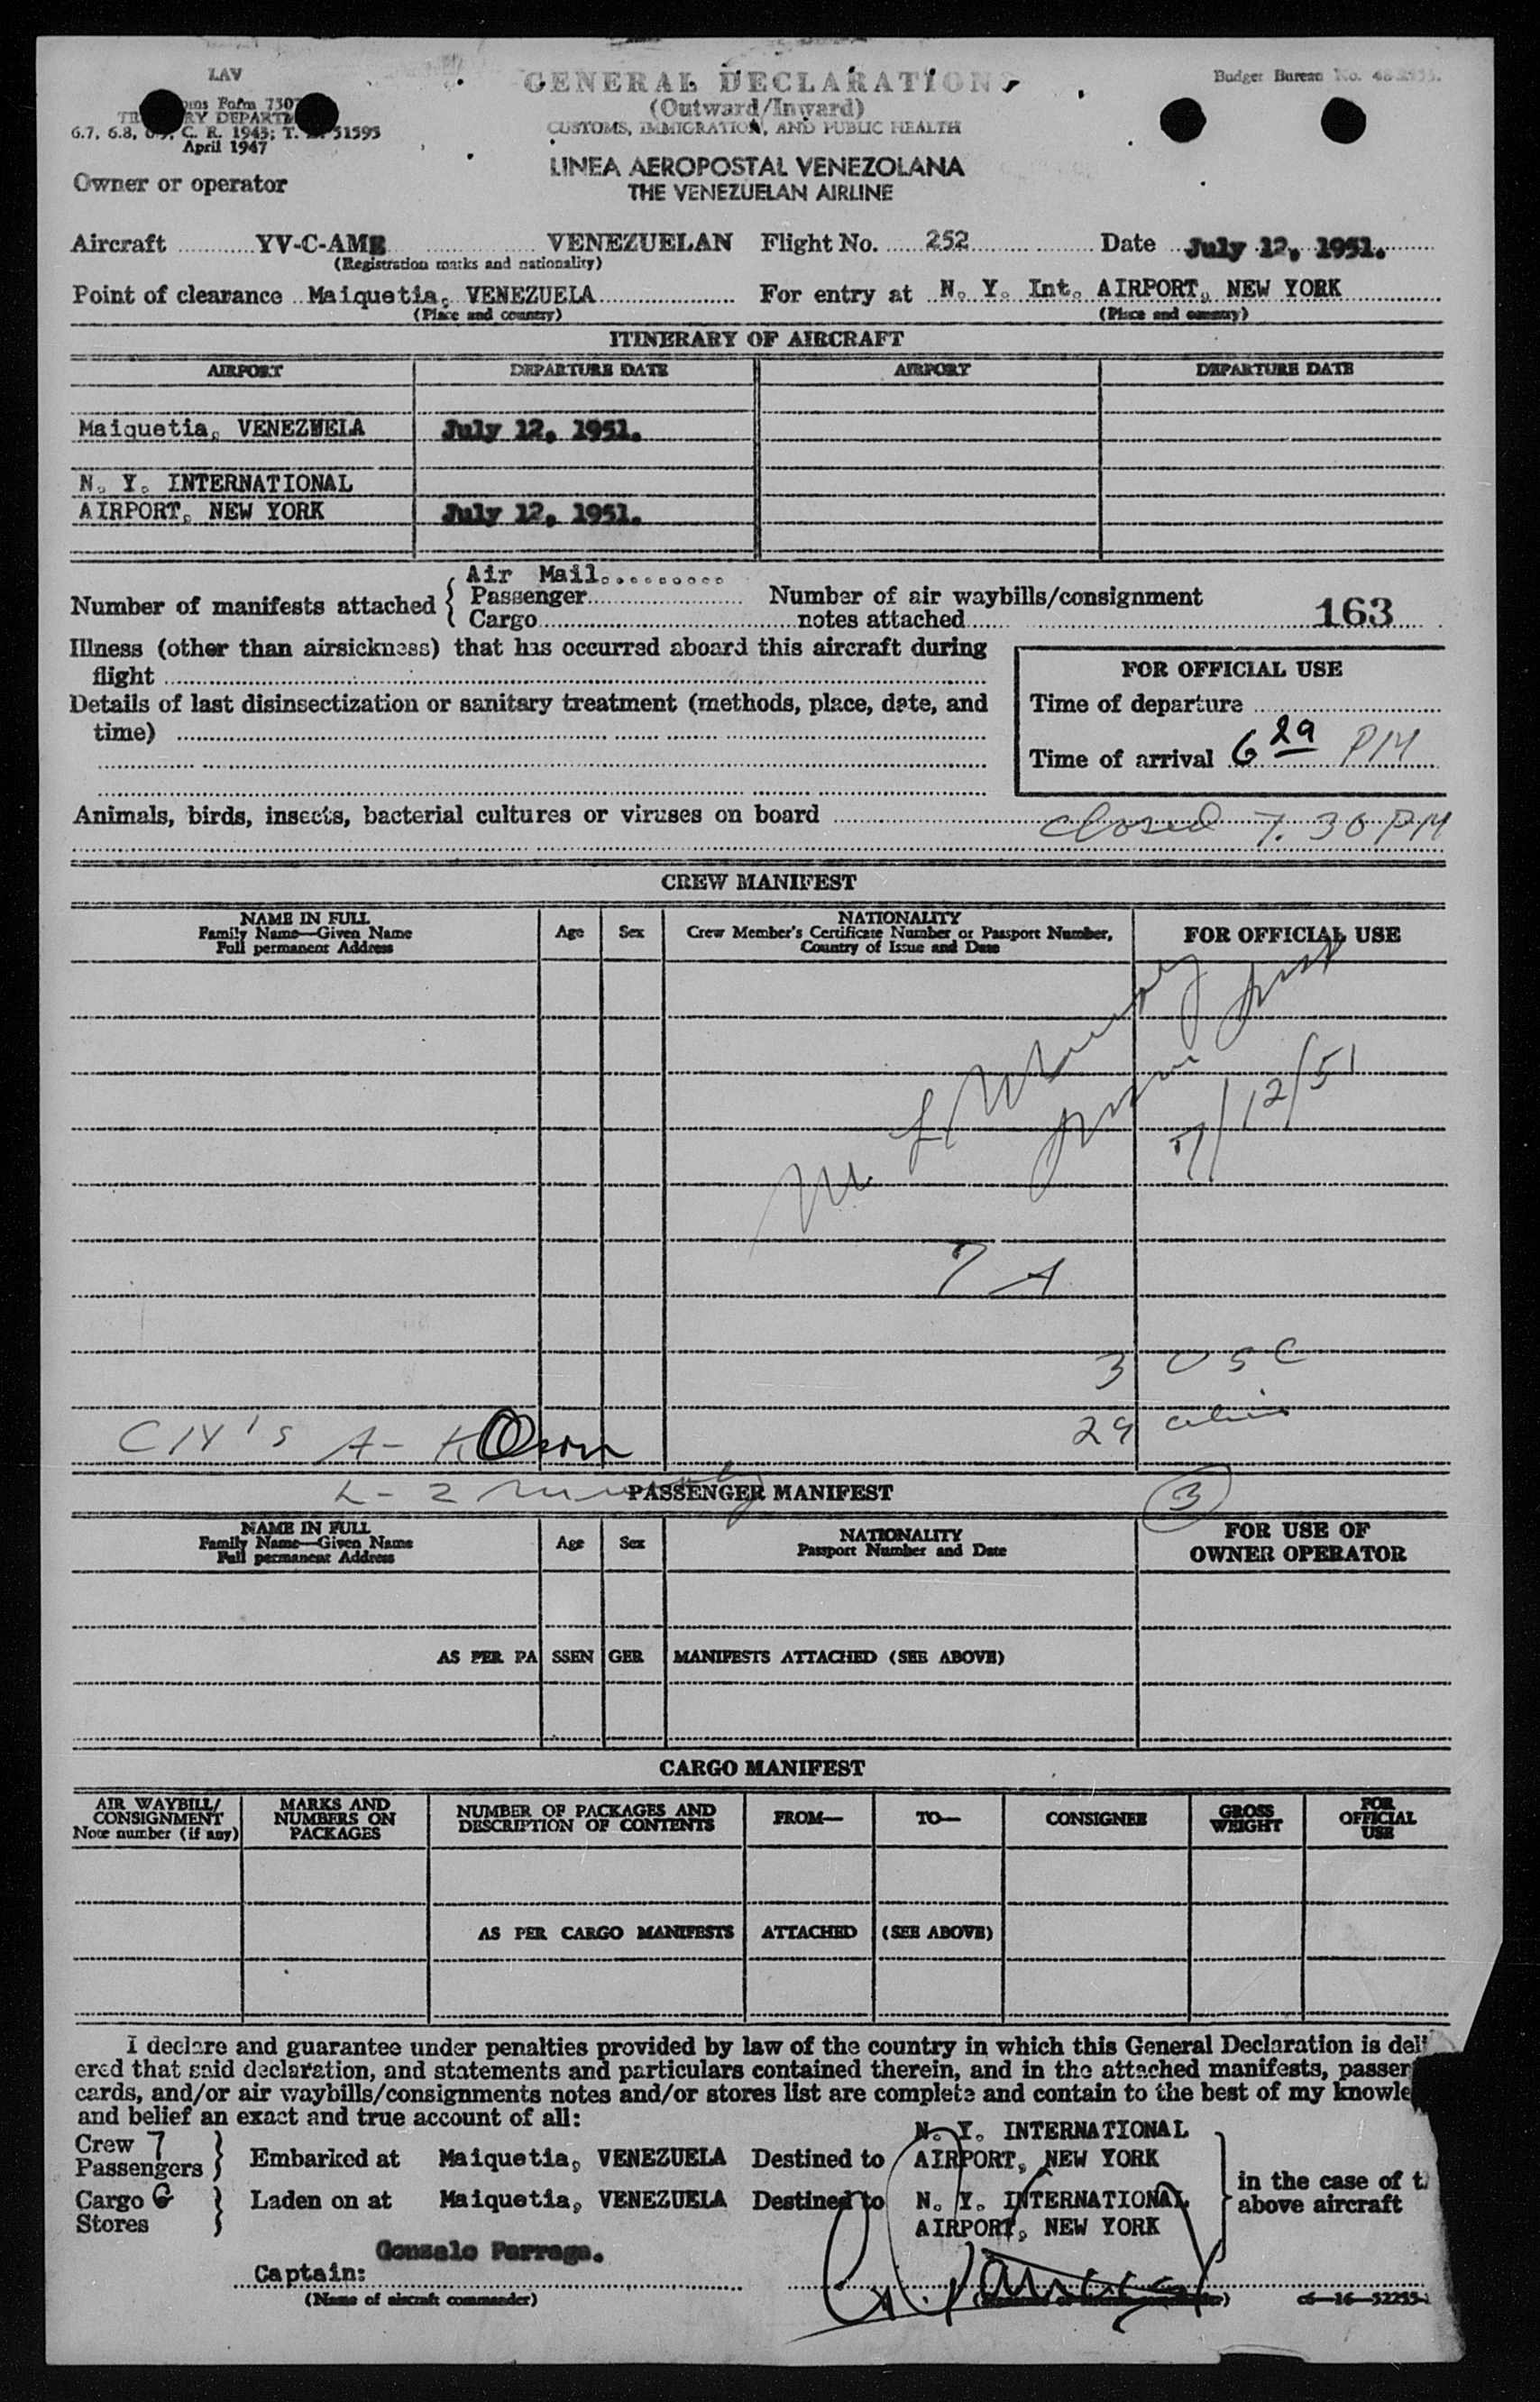 LAV
GENERAL DECLARATION
Budget Bureau No.
Form 7507
(Outward/Inward)
CUSTOMS, IMMIGRATION, AND PUBLIC HEALTH
6.7, 6.8, C. R. 1945; T. 51595
April 1947
LINEA AEROPOSTAL VENEZOLANA
Owner or operator
THE VENEZUELAN AIRLINE
Aircraft YV-C-AME VENEZUELAN Flight No. 252 Date July 12, 1951.
(Registration marks and nationality)
Point of clearance Maiquetia, VENEZUELA For entry at N. Y. Int. AIRPORT, NEW YORK
(Place and country) (Place and country)
ITINERARY OF AIRCRAFT
AIRPORT DEPARTURE DATE AIRPORT DEPARTURE DATE
Maiquetia, VENEZUELA July 12, 1951.
N. Y. INTERNATIONAL
AIRPORT, NEW YORK July 12, 1951.
Air Mail
Number of manifests attached { Passenger Number of air waybills/consignment
Cargo notes attached 163
Illness (other than airsickness) that has occurred aboard this aircraft during
flight
FOR OFFICIAL USE
Details of last disinsectization or sanitary treatment (methods, place, date, and
time)
Time of departure
Time of arrival 6 29 PM
Animals, birds, insects, bacterial cultures or viruses on board
Closed 7.30 PM
CREW MANIFEST
NAME IN FULL
Family Name—Given Name
Full permanent Address
Age Sex
NATIONALITY
Crew Member's Certificate Number or Passport Number,
Country of Issue and Date
FOR OFFICIAL USE
7/12/51
7 A
3 USC
29
A-
L- 2
PASSENGER MANIFEST
3
NAME IN FULL
Family Name—Given Name
Full permanent Address
Age Sex
NATIONALITY
Passport Number and Date
FOR USE OF
OWNER OPERATOR
AS PER PASSENGER MANIFESTS ATTACHED (SEE ABOVE)
CARGO MANIFEST
AIR WAYBILL/
CONSIGNMENT
Note number (if any)
MARKS AND
NUMBERS ON
PACKAGES
NUMBER OF PACKAGES AND
DESCRIPTION OF CONTENTS
FROM— TO— CONSIGNEE
GROSS
WEIGHT
FOR
OFFICIAL
USE
AS PER CARGO MANIFESTS ATTACHED (SEE ABOVE)
I declare and guarantee under penalties provided by law of the country in which this General Declaration is deli
ered that said declaration, and statements and particulars contained therein, and in the attached manifests, passen
cards, and/or air waybills/consignments notes and/or stores list are complete and contain to the best of my knowle
and belief an exact and true account of all:
N. Y. INTERNATIONAL
Crew 7
Passengers } Embarked at Maiquetia, VENEZUELA Destined to AIRPORT, NEW YORK
in the case of t
above aircraft
Cargo
Stores } Laden on at Maiquetia, VENEZUELA Destined to N. Y. INTERNATIONAL
AIRPORT, NEW YORK
Gonzalo Parraga.
Captain:
(Name of aircraft commander)
c6—16—52255-1